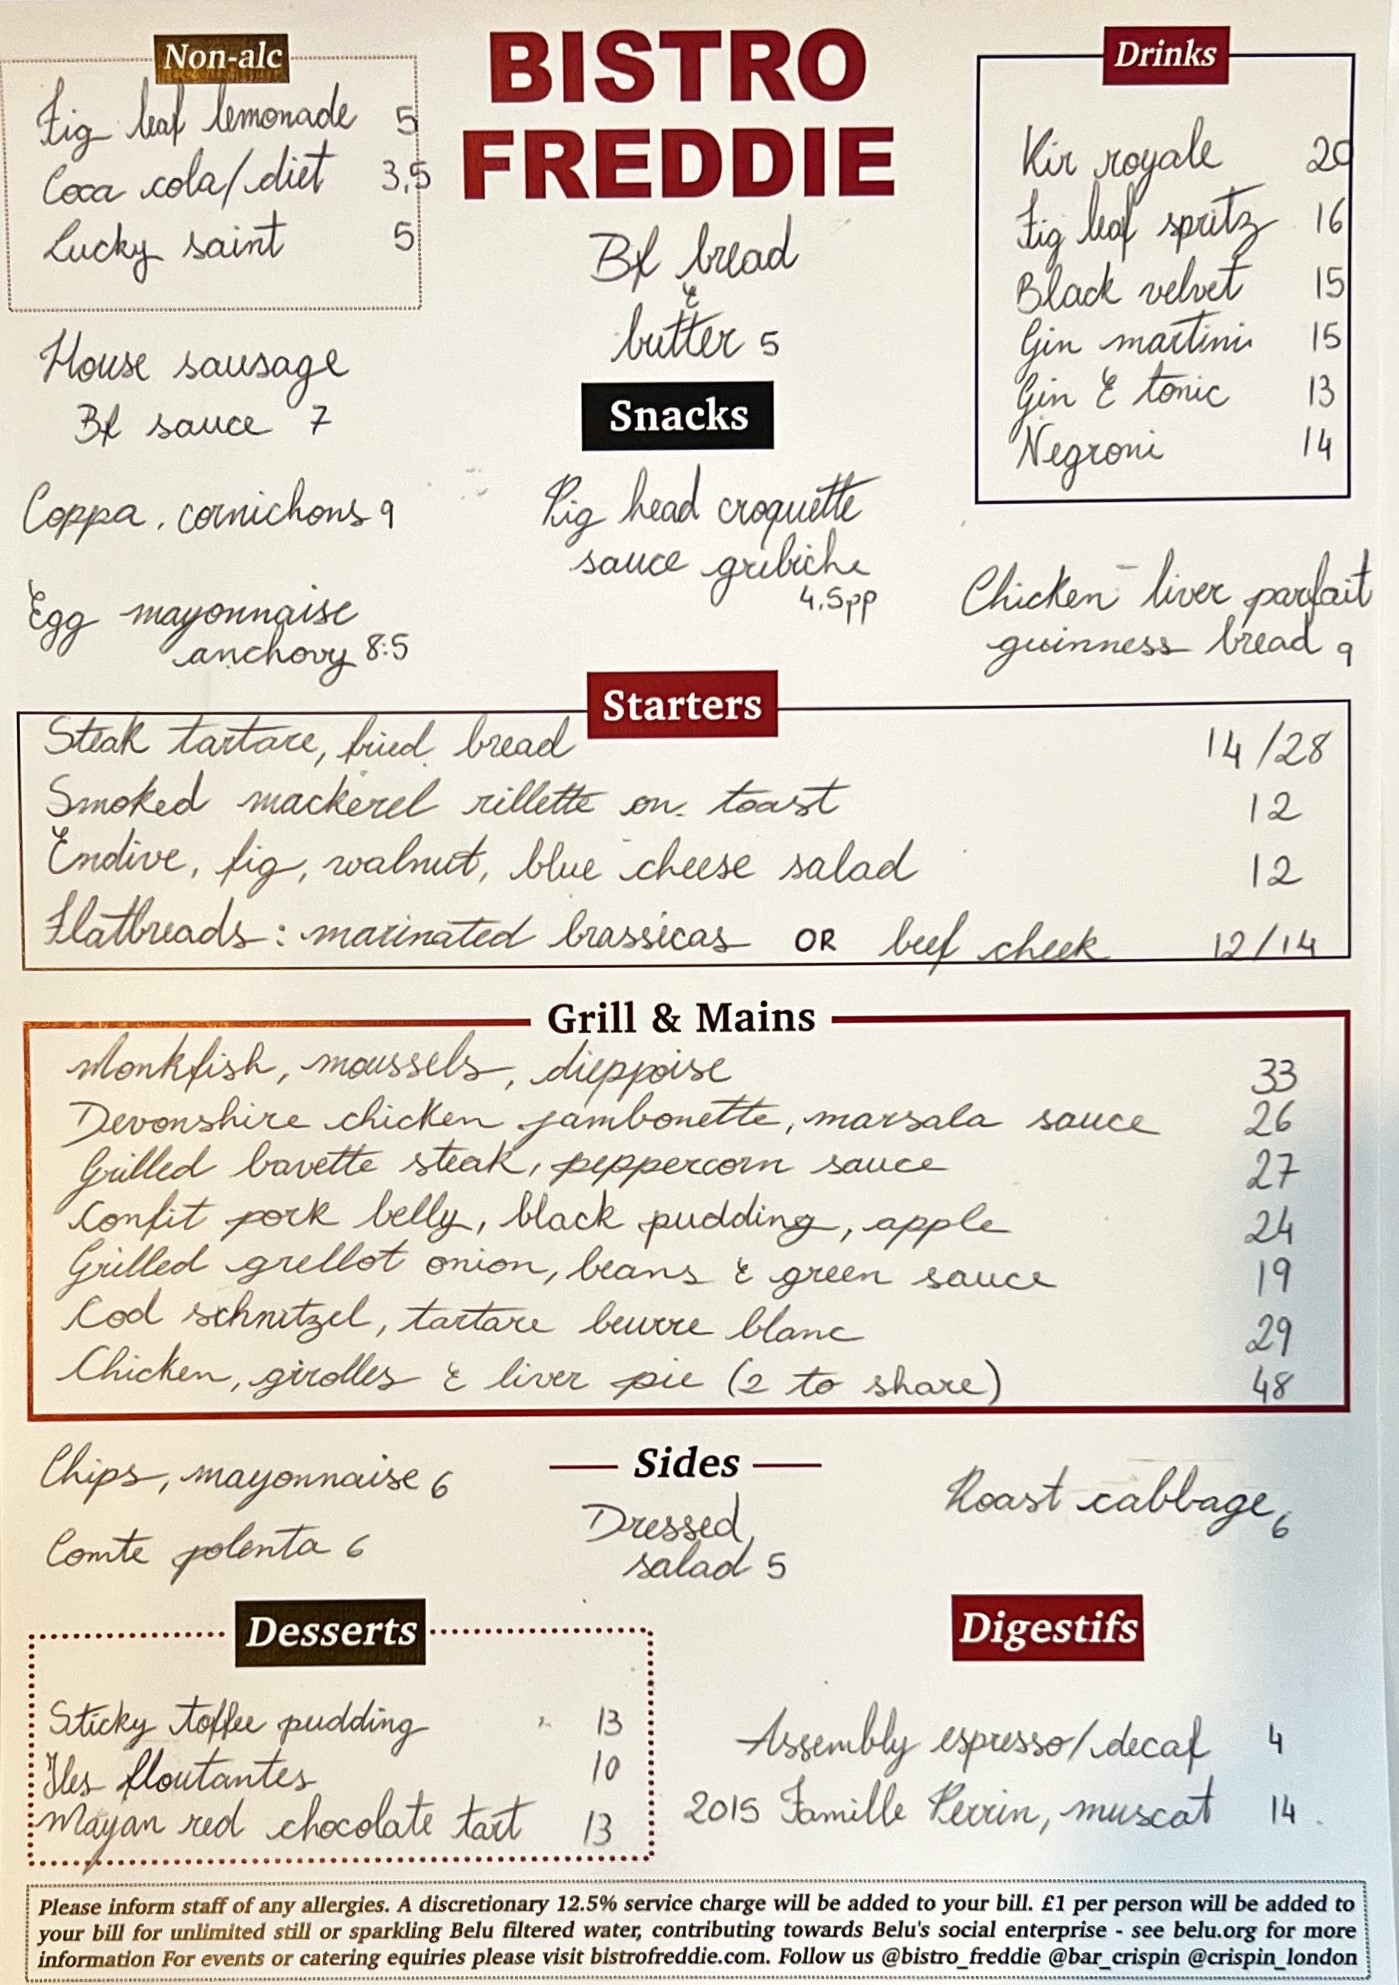 BISTRO
FREDDIE
Non-alc
Fig leaf lemonade 5
Coca cola/diet 3,5
Lucky saint 5
Drinks
Kir royale 20
Fig leaf spritz 16
Black velvet 15
Gin martini 15
Gin & tonic 13
Negroni 14
Bf bread
&
butter 5
Snacks
House sausage
Bf sauce 7
Coppa, cornichons 9
Egg mayonnaise
anchovy 8.5
Pig head croquette
sauce gribiche
4,5pp
Chicken liver parfait
guinness bread 9
Starters
Steak tartare, fried bread 14/28
Smoked mackerel rillette on toast 12
Endive, fig, walnut, blue cheese salad 12
Flatbreads: marinated brassicas OR beef cheek 12/14
Grill & Mains
Monkfish, moussels, dieppoise 33
Devonshire chicken jambonette, marsala sauce 26
Grilled bavette steak, peppercorn sauce 27
Confit pork belly, black pudding, apple 24
Grilled grellot onion, beans & green sauce 19
Cod schnitzel, tartare beurre blanc 29
Chicken, girolles & liver pie (2 to share) 48
Sides
Chips, mayonnaise 6
Comte polenta 6
Dressed
salad 5
Roast cabbage 6
Desserts
Sticky toffee pudding 13
Iles floutantes 10
Mayan red chocolate tart 13
Digestifs
Assembly espresso/decaf 4
2015 Famille Perrin, muscat 14
Please inform staff of any allergies. A discretionary 12.5% service charge will be added to your bill. £1 per person will be added to
your bill for unlimited still or sparkling Belu filtered water, contributing towards Belu's social enterprise - see belu.org for more
information For events or catering equiries please visit bistrofreddie.com. Follow us @bistro_freddie @bar_crispin @crispin_london